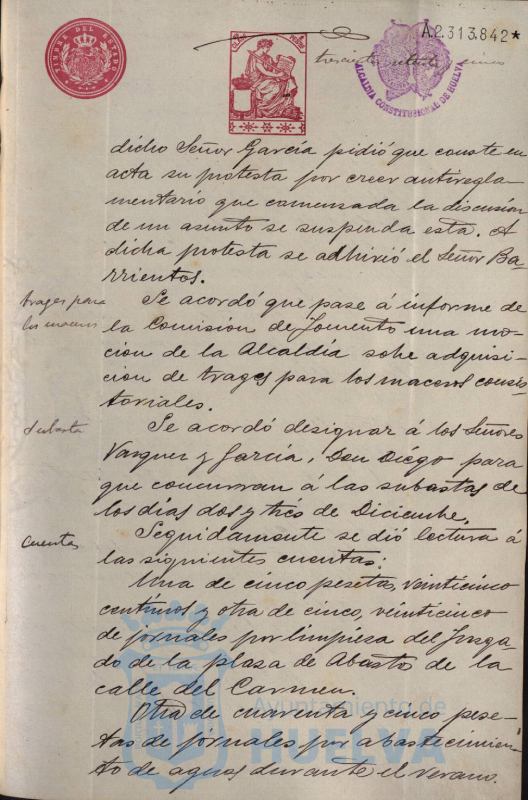 TIMBRE DEL ESTADO
A.2.313.842*
trescientos ochenta y cinco
ALCALDIA CONSTITUCIONAL DE HUELVA
dicho Señor García pidió que conste en
acta su protesta por creer antiregla-
mentario que comenzada la discusión
de un asunto se suspenda esta. A
dicha protesta se adhirió el Señor Ba-
rrientos.
trages para
los maceros
Se acordó que pase á informe de
la Comisión de Fomento una mo-
cion de la Alcaldía sobe adquisi-
cion de trages para los maceros consis-
toriales.
Subasta
Se acordó designar á los Señores
Vazquez y García, Don Diego para
que concurran á las subastas de
los días dos y tres de Diciembe.
Cuentas
Seguidamente se dió lectura á
las siguientes cuentas:
Una de cinco pesetas, veinticinco
centimos y otra de cinco, veinticinco
de jornales por limpieza del Juzga-
do de la plaza de Abastos de la
calle del Carmen.
Otra de cuarenta y cinco pese-
tas de jornales por abastecimien-
to de aguas durante el verano.
Ayuntamiento de
HUELVA